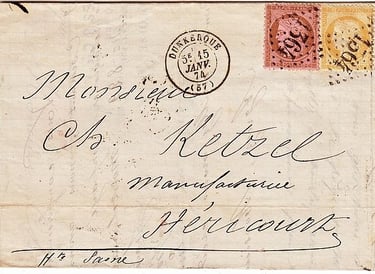 DUNKERQUE
5E 15
JANV.
74
(57)
1364
Monsieur
Ch Ketzel
manufacturier
Héricourt
Hte Saone